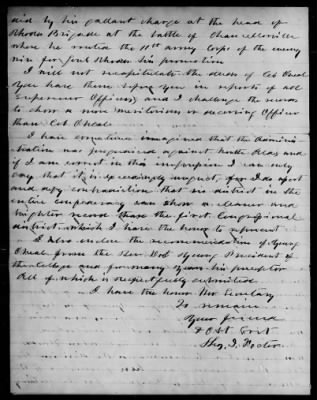 did by his gallant charge at the head of
Rhodes Brigade at the battle of Chancellorville
where he routed the 11th army Corps of the enemy
win for Genl Rhodes his promotion
I will not recapitulate the deeds of Col Oneal
You have them before you in reports of all
Superior Officers and I challenge the records
to show a more meritorious or deserving Officer
than Col Oneal
I have sometimes imagined that the Adminis
tration was prejudiced against North Ala and
if I am correct in this impression I can only
say that it is exceedingly unjust, for I do assert
and defy contradiction that no district in the
entire Confederacy can show a cleaner and
brighter record than the first Congressional
district which I have the honor to represent
I also endorse the recommendation of Young
Oneal from the Rev. President of
the College and for many years his preceptor
All of which is respectfully submitted
I have the honor Mr Secretary
To remain
Your friend
& Obt Svt
Foster